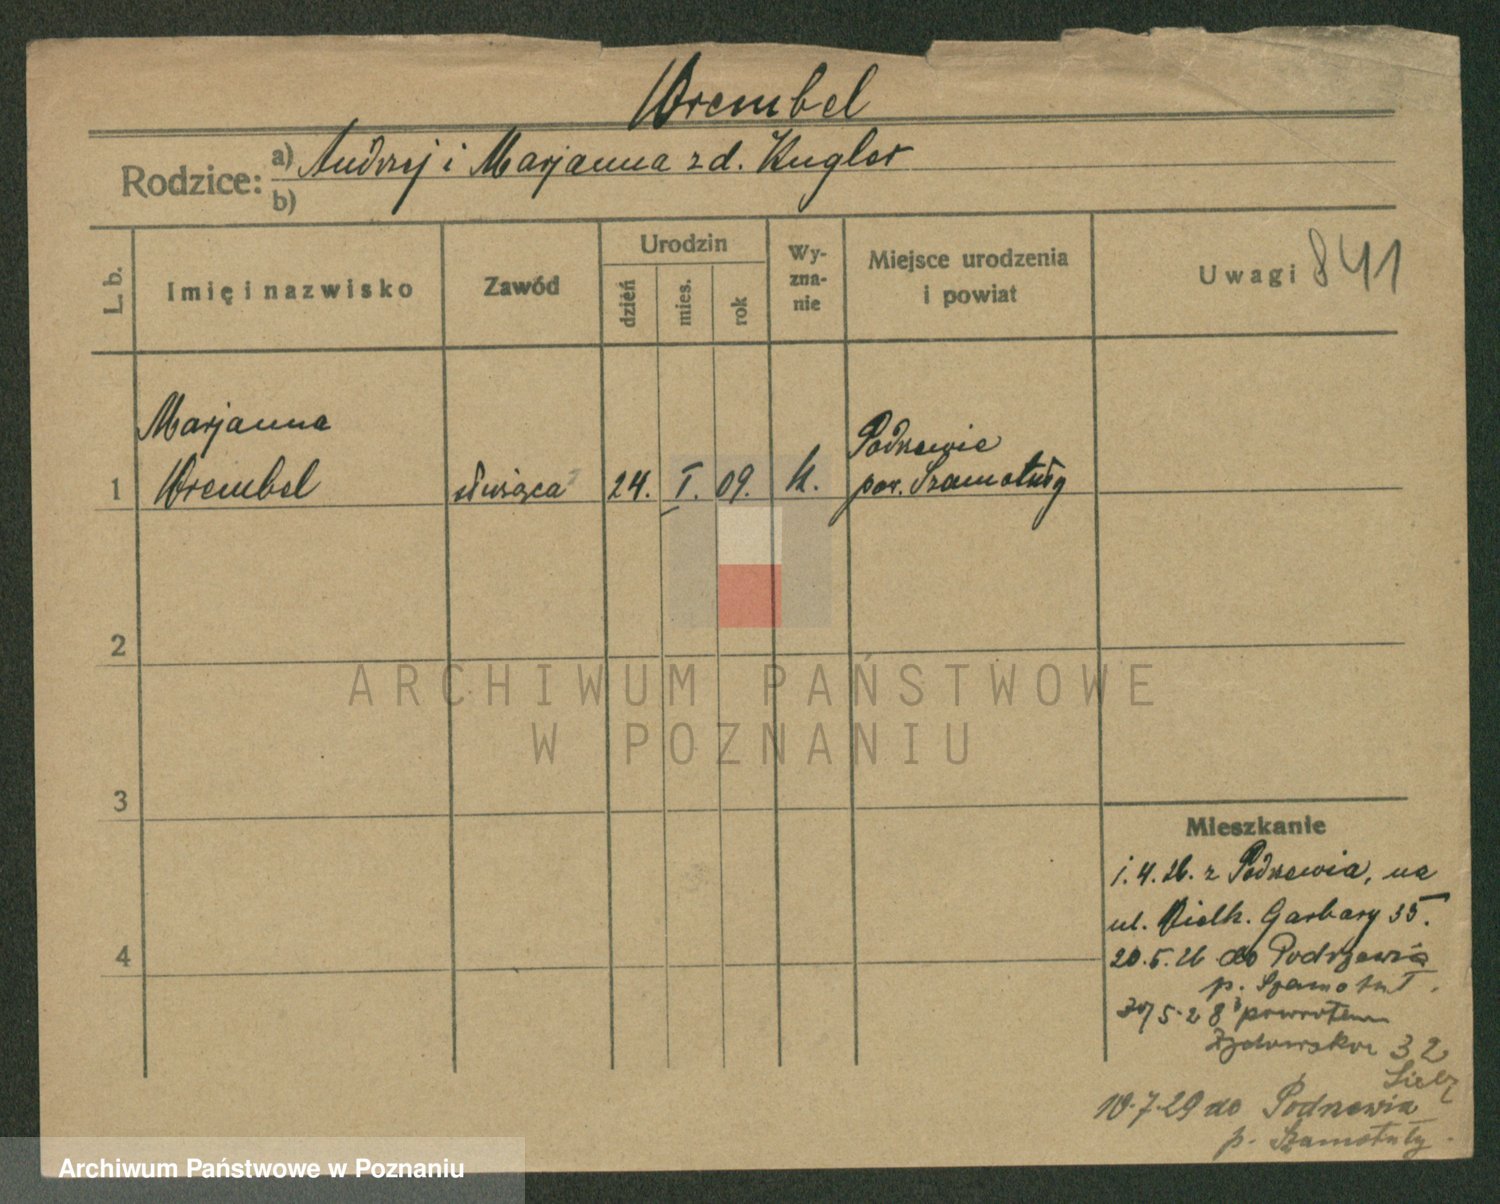 Wrembel
Rodzice:
a) Andrzej i Marjanna z d. Kugler
b)
L. b.
Imię i nazwisko
Zawód
Urodzin
dzień
mies.
rok
Wy-
zna-
nie
Miejsce urodzenia
i powiat
Uwagi 841
1
Marjanna
Wrembel
służąca
24.
I.
09.
k.
Podrzewie
pow. Szamotuły
2
3
4
Mieszkanie
1.4.26. z Podrzewia, na
ul. Wielk. Garbary 35.
20.5.26 do Podrzewia
p. Szamotuł.
5.28 z powrotem
Żydowska 32
10.7.29 do Podrzewia
p. Szamotuły.
ARCHIWUM PAŃSTWOWE
W POZNANIU
Archiwum Państwowe w Poznaniu